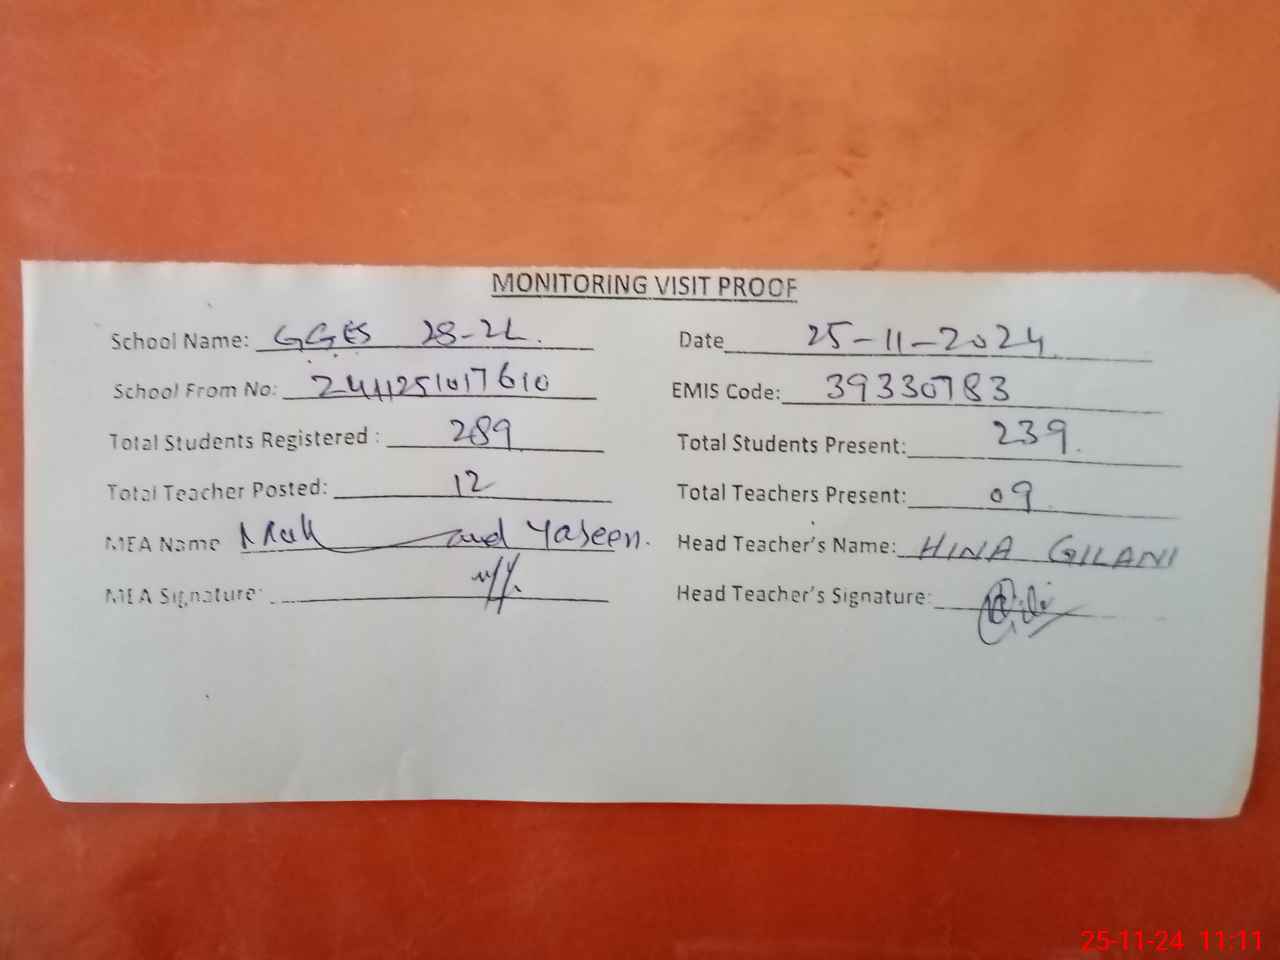 MONITORING VISIT PROOF
School Name: GGES 28-2L. Date 25-11-2024
School From No: 2411251017610 EMIS Code: 39330783
Total Students Registered : 289 Total Students Present: 239.
Total Teacher Posted: 12 Total Teachers Present: 09
MEA Name and Yaseen. Head Teacher's Name: HINA GILANI
MEA Signature: Head Teacher's Signature:
25-11-24 11:11